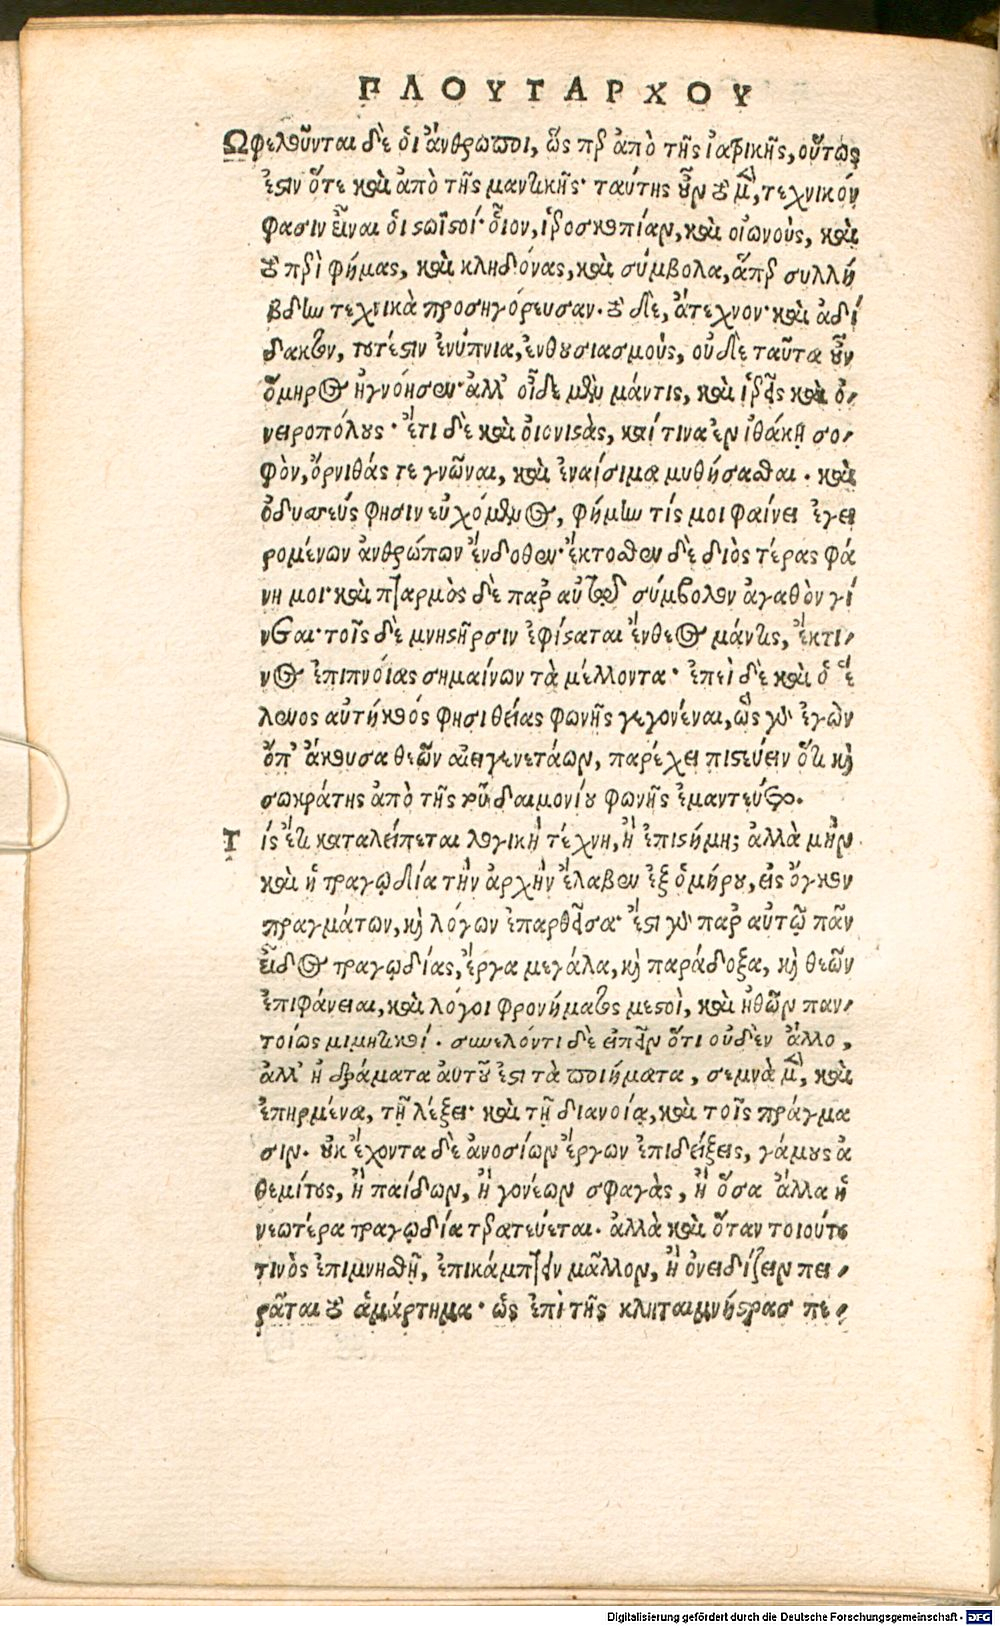 ΠΛΟΥΤΑΡΧΟΥ
Ωφελοῦνται δὲ ὁι ἄνθρωποι, ὥσπερ ἀπὸ τῆς ἰατρικῆς, οὕτως
ἐστιν ὅτε καὶ ἀπὸ τῆς μαντικῆς· ταύτης οὖν τὸ μὲν, τεχνικόν
φασιν εἶναι ὁι στωϊκοί· οἷον, ἱεροσκοπίαν, καὶ οἰωνοὺς, καὶ
τὸ περὶ φήμας, καὶ κληδόνας, καὶ σύμβολα, ἅπερ συλλή
βδην τεχνικὰ προσηγόρευσαν. τὸ δὲ, ἄτεχνον· καὶ ἀδί
δακτον, τουτέστιν ἐνύπνια, ἐνθουσιασμοὺς, οὐδὲ ταῦτα οὖν
ὅμηρος ἠγνόησεν· ἀλλ' οἶδε μὲν μάντις, καὶ ἱερεῖς καὶ ὀ-
νειροπόλους· ἔτι δὲ καὶ ὀιονιστὰς, καί τινα ἐν ἰθάκῃ σο-
φὸν, ὄρνιθάς τε γνῶναι, καὶ ἐναίσιμα μυθήσασθαι. καὶ
ὀδυσσεύς φησιν εὐχόμενος, φήμην τίς μοι φαίνει ἐγει
ρομένων ἀνθρώπων ἔνδοθεν· ἔκτοσθεν δὲ διὸς τέρας φά
νη μοι· καὶ πταρμὸς δὲ παρ' αὐτῷ σύμβολον ἀγαθὸν γί
νεται· τοῖς δὲ μνηστῆρσιν ἐφίσταται ἔνθεος μάντις, ἔκ τι-
νος ἐπιπνοίας σημαίνων τὰ μέλλοντα· ἐπεὶ δὲ καὶ ὁ ἕ
λενος αὐτήκοός φησι θείας φωνῆς γεγονέναι, ὣς γὰρ ἐγὼν
ὄπ' ἄκουσα θεῶν αἰειγενετάων, παρέχει πιστεύειν ὅτι καὶ
σωκράτης ἀπὸ τῆς τοῦ δαιμονίου φωνῆς ἐμαντεύετο.
Τίς ἔτι καταλείπεται λογικὴ τέχνη, ἢ ἐπιστήμη; ἀλλὰ μὴν
καὶ ἡ τραγῳδία τὴν ἀρχὴν ἔλαβεν ἐξ ὁμήρου, εἰς ὄγκον
πραγμάτων, καὶ λόγων ἐπαρθεῖσα· ἔστι γὰρ παρ' αὐτῷ πᾶν
εἶδος τραγῳδίας, ἔργα μεγάλα, καὶ παράδοξα, καὶ θεῶν
ἐπιφάνειαι, καὶ λόγοι φρονήματος μεστοὶ, καὶ ἠθῶν παν-
τοίως μιμητικοί. συνελόντι δὲ εἰπεῖν ὅτι οὐδὲν ἄλλο,
ἀλλ' ἢ δράματα αὐτοῦ ἐστι τὰ ποιήματα, σεμνὰ μὲν, καὶ
ἐπηρμένα, τῇ λέξει· καὶ τῇ διανοίᾳ, καὶ τοῖς πράγμα
σιν. οὐκ ἔχοντα δὲ ἀνοσίων ἔργων ἐπιδείξεις, γάμους ἀ
θεμίτους, ἢ παίδων, ἢ γονέων σφαγὰς, ἢ ὅσα ἄλλα ἡ
νεωτέρα τραγῳδία τερατεύεται. ἀλλὰ καὶ ὅταν τοιούτου
τινὸς ἐπιμνησθῇ, ἐπικάμπτειν μᾶλλον, ἢ ὀνειδίζειν πει-
ρᾶται τὸ ἁμάρτημα· ὡς ἐπὶ τῆς κληταιμνήστρας πε-
Digitalisierung gefördert durch die Deutsche Forschungsgemeinschaft - DFG